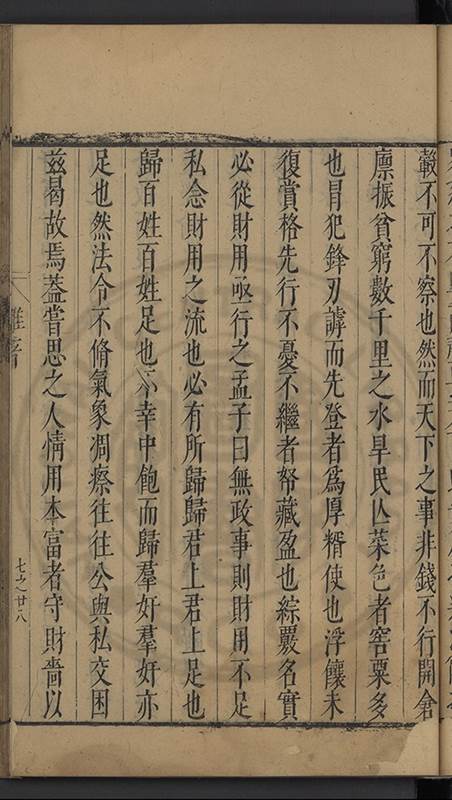 轂不可不察也然而天下之事非錢不行開倉
廩振貧窮數千里之水旱民亾菜色者窖粟多
也冒犯鋒刃謼而先登者爲厚糈使也浮饟未
復賞格先行不憂不繼者帑藏盈也綜覈名實
必從財用亟行之孟子曰無政事則財用不足
私念財用之流也必有所歸歸君上君上足也
歸百姓百姓足也不幸中飽而歸羣奸羣奸亦
足也然法令不脩氣象凋瘵往往公與私交困
茲曷故焉蓋嘗思之人情用本富者守財嗇以
雜著
七之廿八